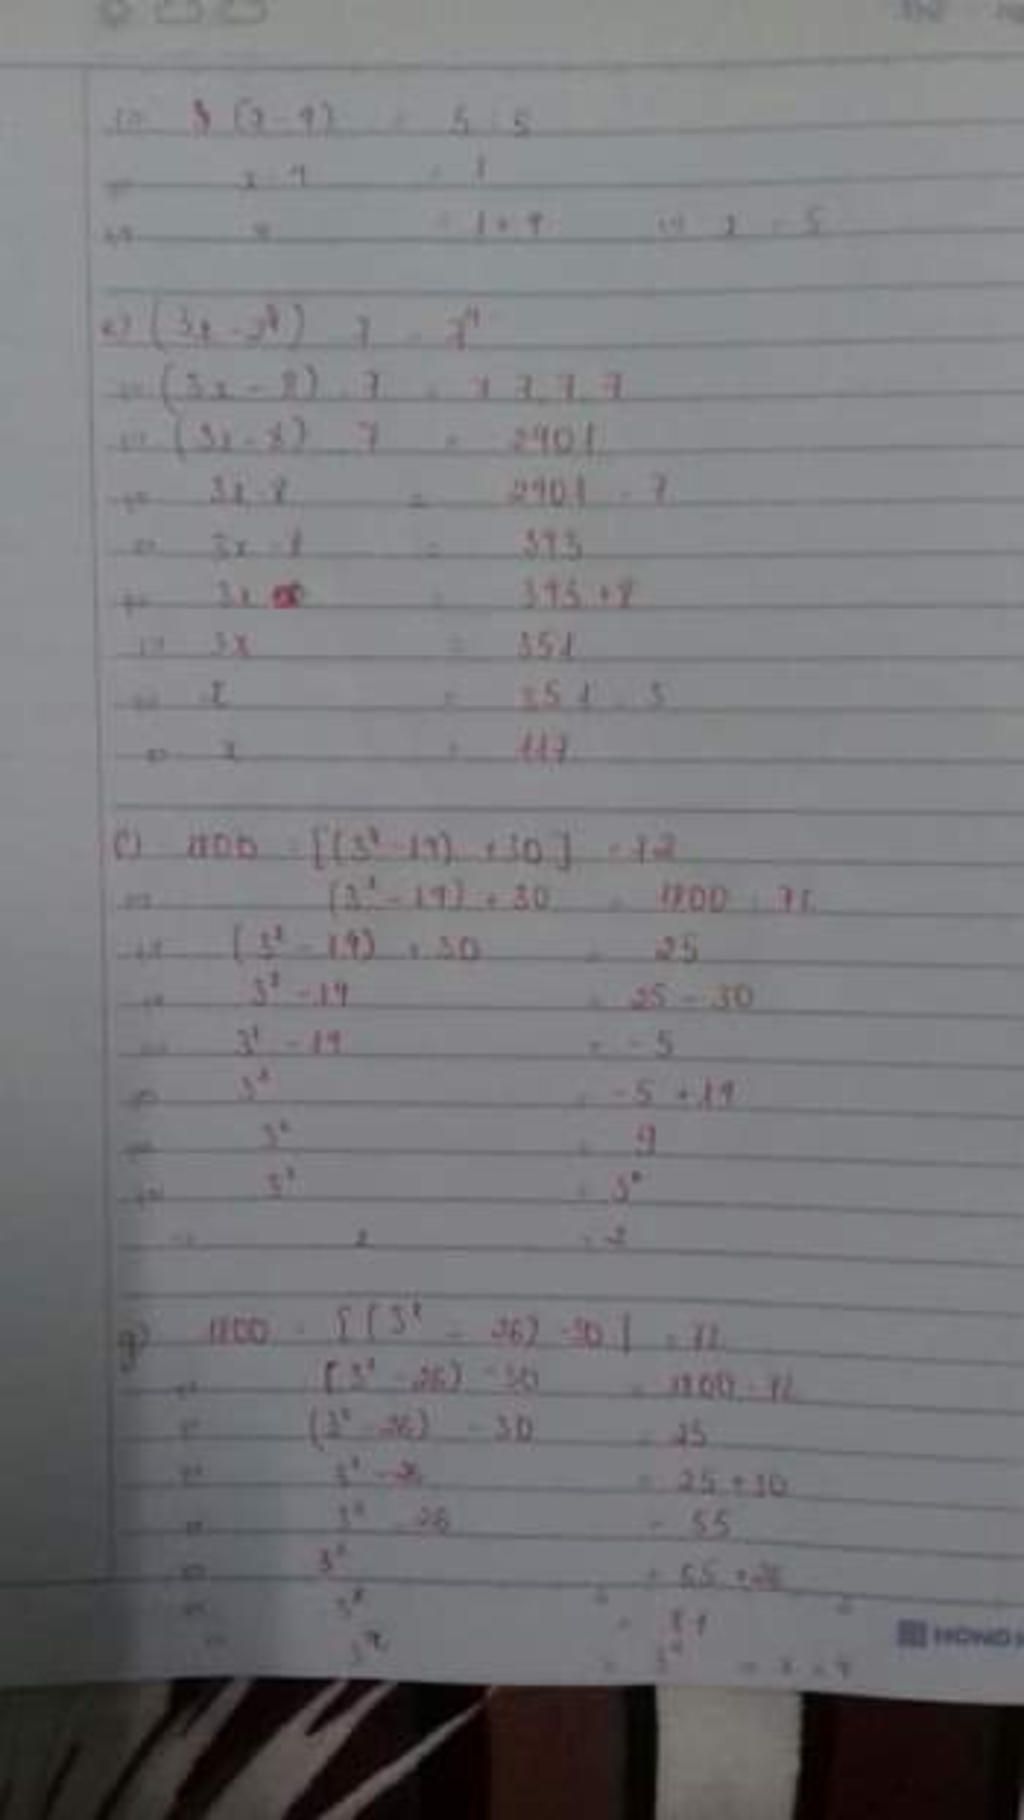 (x - 4) = 5 : 5
x - 4 = 1
x = 1 + 4 => x = 5
e) (3x - 2³) . 7 = 7⁴
=> (3x - 8) . 7 = 7.7.7.7
=> (3x - 8) . 7 = 2401
=> 3x - 8 = 2401 : 7
=> 3x - 8 = 343
=> 3x = 343 + 8
=> 3x = 351
=> x = 351 : 3
=> x = 117
f) 1800 : [(3ˣ - 14) + 30] = 72
=> (3ˣ - 14) + 30 = 1800 : 72
=> (3ˣ - 14) + 30 = 25
=> 3ˣ - 14 = 25 - 30
=> 3ˣ - 14 = -5
=> 3ˣ = -5 + 14
=> 3ˣ = 9
=> 3ˣ = 3²
=> x = 2
g) 1800 : [(3ˣ - 26) - 30] = 72
=> (3ˣ - 26) - 30 = 1800 : 72
=> (3ˣ - 26) - 30 = 25
=> 3ˣ - 26 = 25 + 30
=> 3ˣ - 26 = 55
=> 3ˣ = 55 + 26
=> 3ˣ = 81
=> 3ˣ = 3⁴ => x = 4